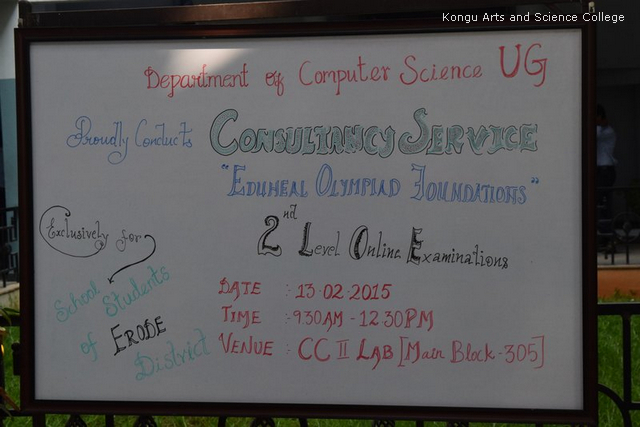 Kongu Arts and Science College
Department of Computer Science UG
Proudly Conducts CONSULTANCY SERVICE
"EDUHEAL OLYMPIAD FOUNDATIONS"
2nd Level Online Examinations
Exclusively for
School Students
of ERODE
District
DATE : 13.02.2015
TIME : 9.30AM - 12.30PM
VENUE : CC II LAB [Main Block - 305]